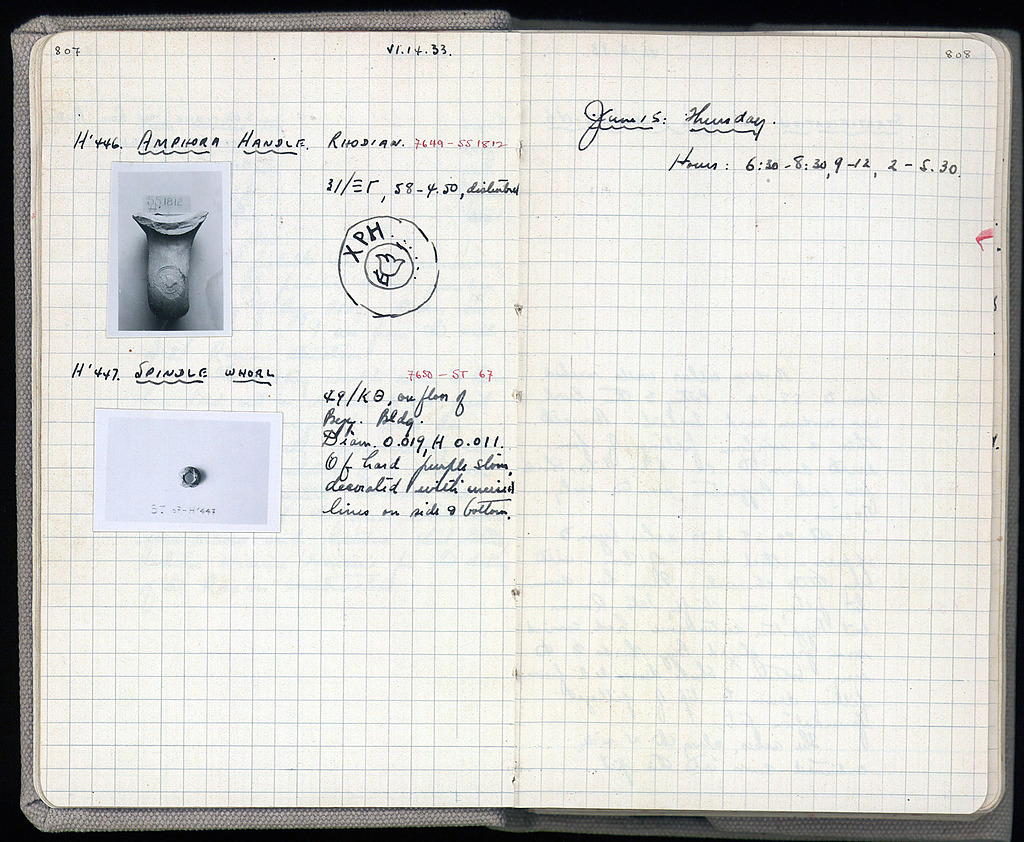 807
VI.14.33.
H'446. AMPHORA HANDLE. RHODIAN. 7649-SS 1812
31/ΞΓ, 58-4.50, disturbed
SS 1812
ΧΡΗ
H'447. SPINDLE WHORL
7650-ST 67
49/ΚΘ, on floor of
Byz. Bldg.
Diam. 0.019, H 0.011.
Of hard purple stone,
decorated with incised
lines on side & bottom.
ST 67-H'447
808
June 15: Thursday.
Hours: 6:30-8:30, 9-12, 2-5.30.